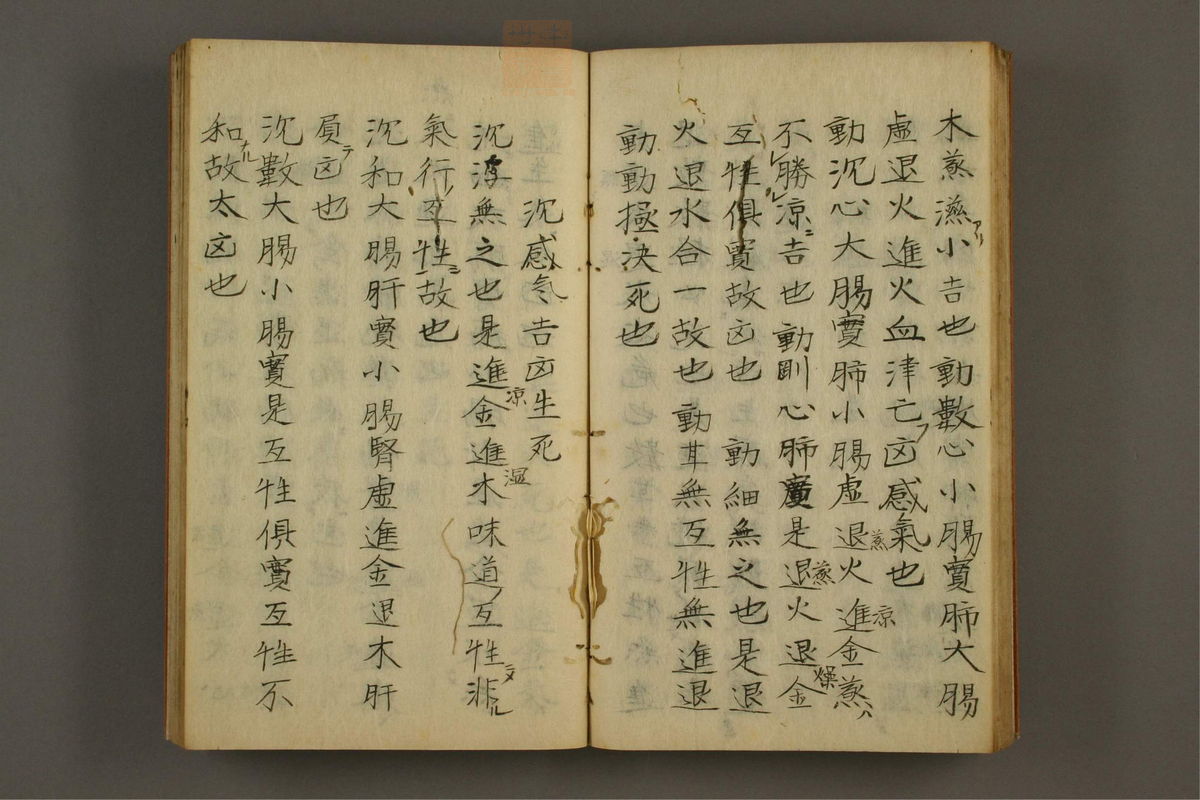 木蒸濕小吉也動數心小腸實肺大腸
虛退火進火血津亡凶感氣也
動沉心大腸實肺小腸虛退火進金蒸ハ
不勝涼吉也動剛心肺實是退火退金
互性俱實故凶也 動細無之也是退
火退水合一故也動其無互性無進退
動動極決死也
沉感気吉凶生死
沉浮無之也是進金進木味道互性非
氣行互性故也
沉和大腸肝實小腸腎虛進金退木肝
負凶也
沉數大腸小腸實是互性俱實互性不
和故太凶也